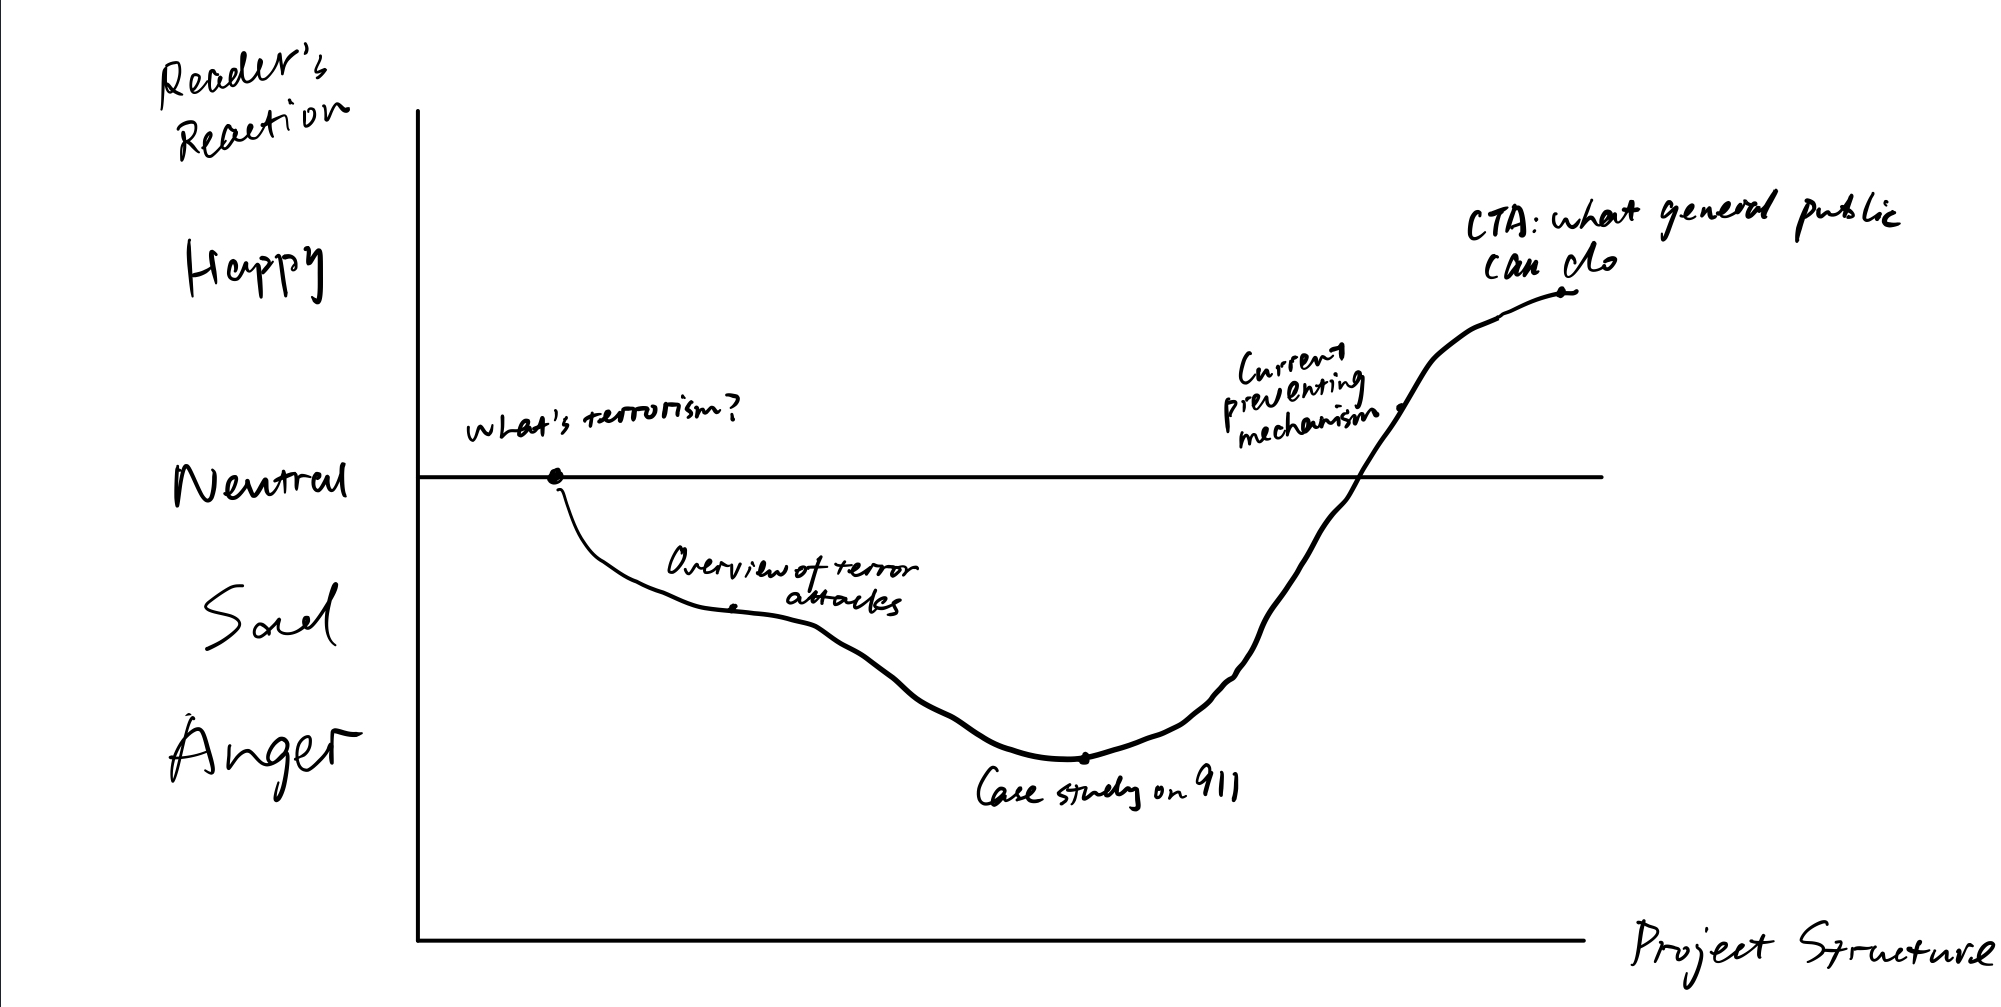 Reader's
Reaction
Happy
Neutral
Sad
Anger
What's terrorism?
Overview of terror
attacks
Case study on 911
Current
preventing
mechanism
CTA: what general public
can do
Project Structure